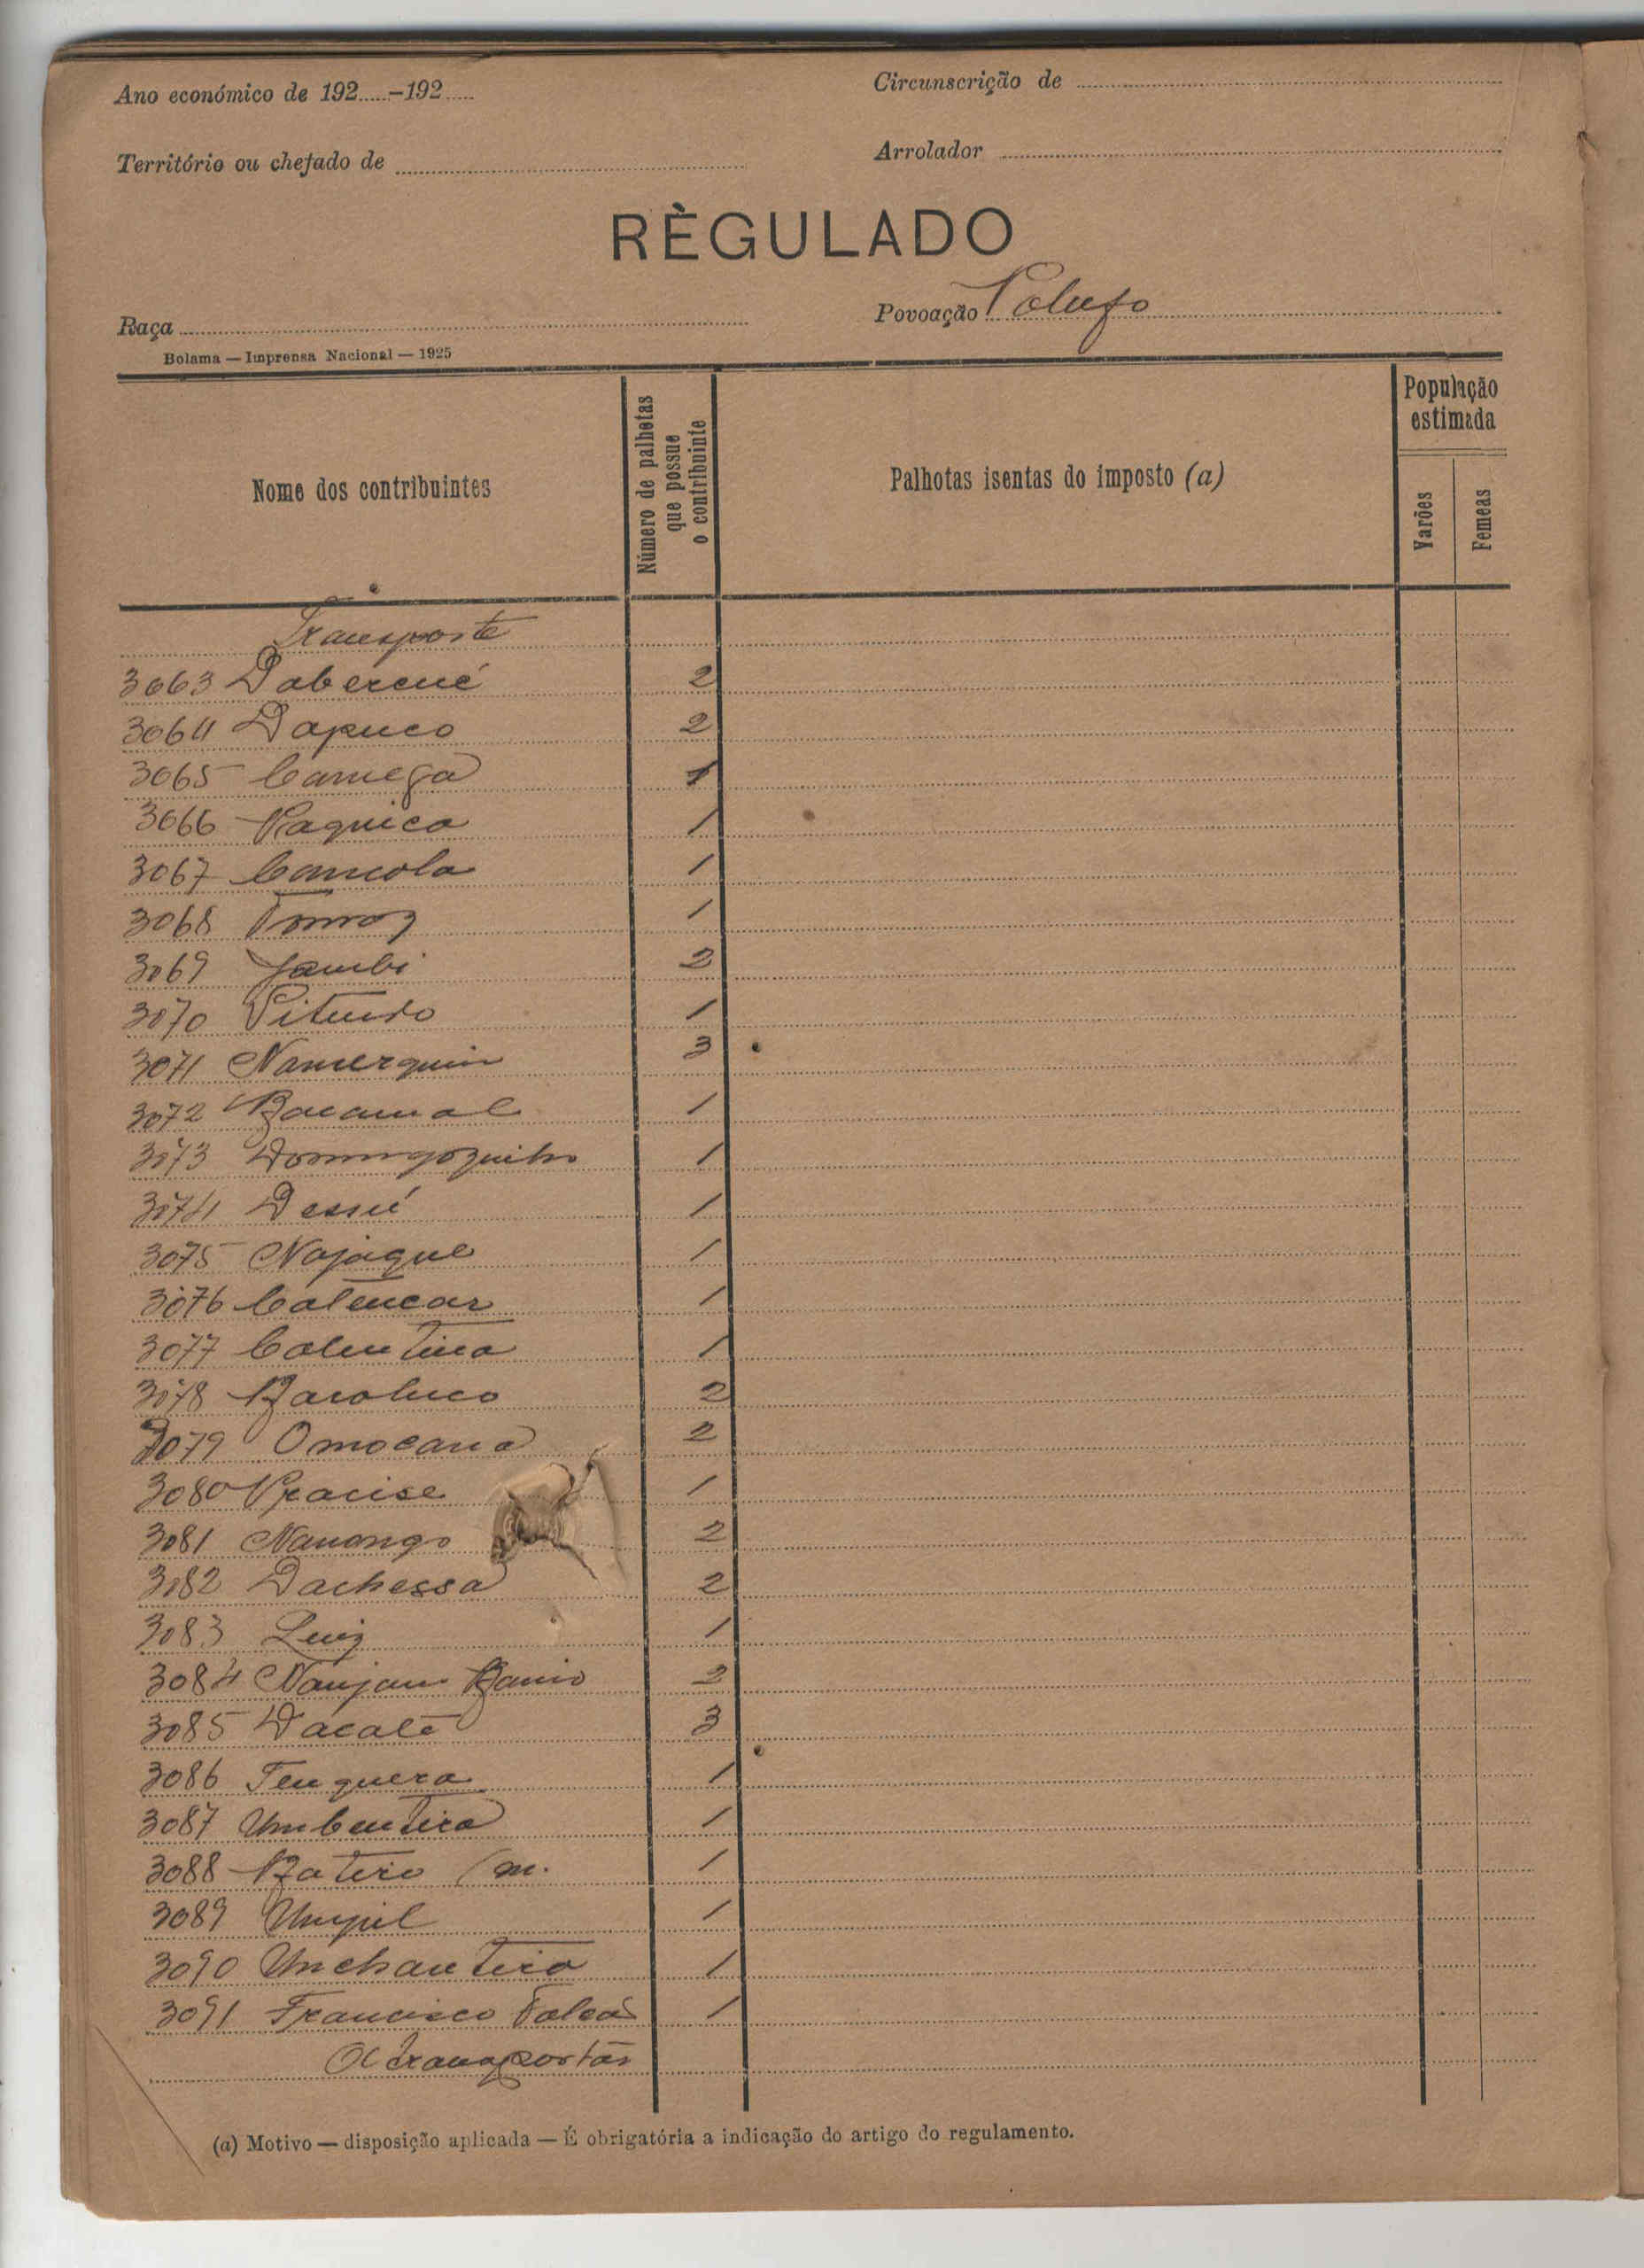 Ano económico de 192.....-192.....
Circunscrição de
Território ou chefado de
Arrolador
RÈGULADO
Raça
Povoação
Bolama — Imprensa Nacional — 1925
Nome dos contribuintes
Número de palhotas que possue o contribuinte
Palhotas isentas do imposto (a)
População estimada
Varões
Femeas
Transporte
3063 Daberené 2
3064 Dapuco 2
3065 Cameça 1
3066 Paquica 1
3067 Camcola 1
3068 Tomoz 1
3069 Jambi 2
3070 Pitundo 1
3071 Namerquin 3
3072 Bacamal 1
3073 Domingozinho 1
3074 Dessué 1
3075 Najaque 1
3076 Catencar 1
3077 Calentina 1
3078 Baroluco 2
3079 Omocana 2
3080 Pracise 1
3081 Nanongo 2
3082 Dachessa 2
3083 Luiz 1
3084 Nanjam Banio 2
3085 Dacaté 3
3086 Tenquera 1
3087 Umbentica 1
3088 Batico (m. 1
3089 Umpil 1
3090 Unchantica 1
3091 Francisco Falcão 1
A transportar
(a) Motivo — disposição aplicada — É obrigatória a indicação do artigo do regulamento.